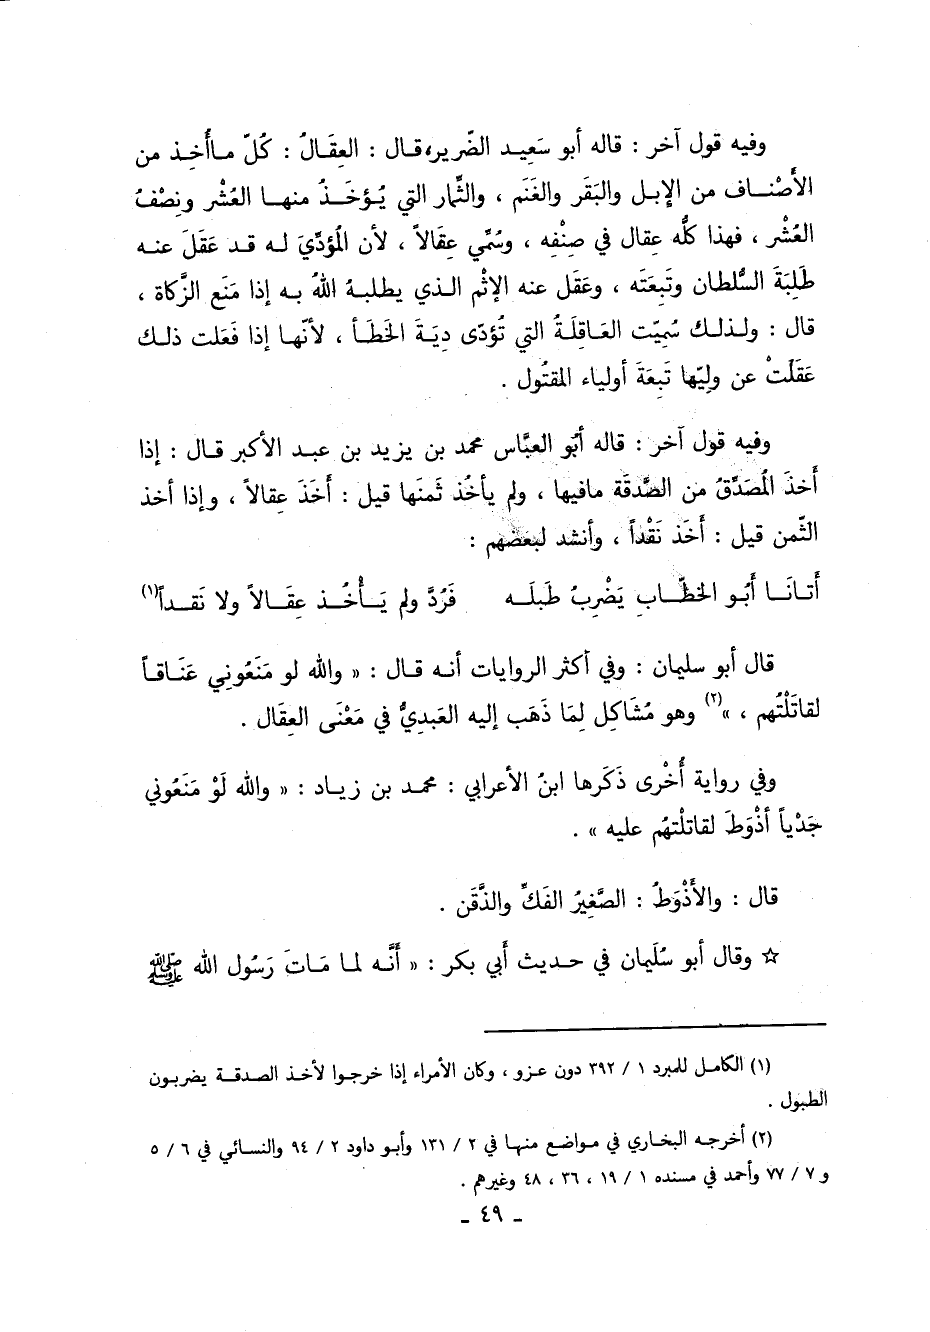 وفيه قول آخر : قاله أبو سَعِيد الضّرير، قال : العِقَالُ : كُلّ ماأُخِذ من
الأَصْناف من الإبل والبَقَر والغَنَم ، والثِّمار التي يُؤخَذُ منها العُشْر ونِصْفُ
العُشْر ، فهذا كلُّه عِقال في صِنْفِه ، وسُمِّي عِقَالاً ، لأن المُؤدِّيَ له قد عَقَلَ عنه
طَلِبَةَ السُّلطان وتَبِعَتَه ، وعَقَل عنه الإثْم الذي يطلبهُ اللهُ به إذا مَنَع الزَّكاة ،
قال : ولذلك سُمِّيت العَاقِلَةُ التي تُؤدّى دِيَةَ الخَطَأ ، لأنّها إذا فَعَلت ذلك
عَقَلَتْ عن وليّها تَبِعَةَ أولياء المقتُول .
وفيه قول آخر : قاله أبُو العبَّاس محمد بن يزيد بن عبد الأكبر قال : إذا
أَخذَ المُصَدِّقُ من الصَّدقَة مافيها ، ولم يأخُذ ثَمنَها قيل : أَخَذَ عِقالاً ، وإذا أخذ
الثّمن قيل : أَخَذ نَقْداً ، وأنشد لبعضهم :
أَتانَا أَبُو الخطَّابِ يَضْرِبُ طَبلَه فَرُدَّ ولم يَأْخُذ عِقَالاً ولا نَقداً(١)
قال أبو سليمان : وفي أكثر الروايات أنه قال : « والله لو مَنَعُونِي عَنَاقاً
لقاتَلْتُهم ، »(٢) وهو مُشَاكِل لِمَا ذَهَب إليه العَبديُّ في مَعْنَى العِقَال .
وفي رواية أُخْرى ذَكَرها ابنُ الأعرابي : محمد بن زياد : « والله لَوْ مَنَعُوني
جَدْياً أذْوَطَ لقاتلْتهُم عليه » .
قال : والأَذْوَطُ : الصَّغِيرُ الفَكِّ والذَّقَن .
☆ وقال أبو سُلَيمان في حديث أَبي بكر : « أَنَّه لما مَاتَ رَسُول الله ﷺ
(١) الكامل للمبرد ١ / ٣٩٢ دون عزو ، وكان الأمراء إذا خرجوا لأخذ الصدقة يضربون
الطبول .
(٢) أخرجه البخاري في مواضع منها في ٢ / ١٣١ وأبو داود ٢ / ٩٤ والنسائي في ٦ / ٥
و ٧ / ٧٧ وأحمد في مسنده ١ / ١٩ ، ٣٦ ، ٤٨ وغيرهم .
ـ ٤٩ ـ